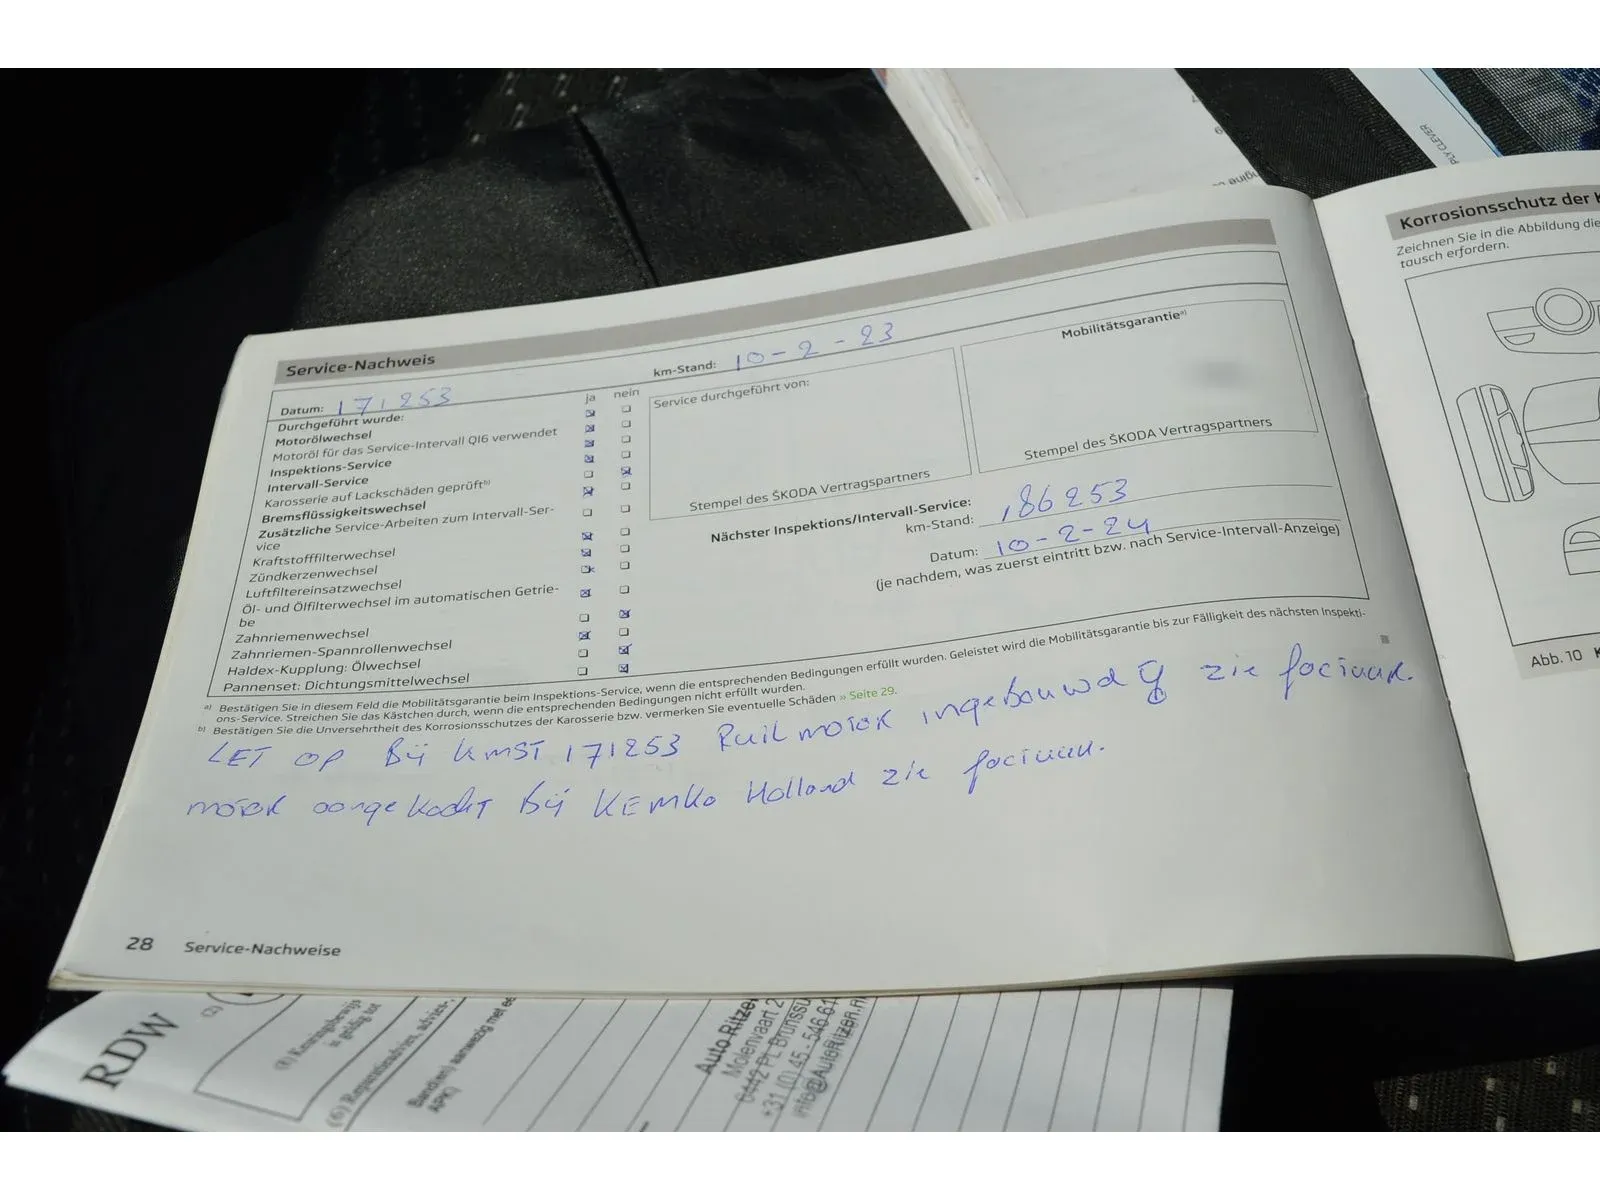 PLY CLEVER
Service-Nachweis
Datum: 171253
km-Stand: 10-2-23
ja nein
Durchgeführt wurde:
Motorölwechsel
Motoröl für das Service-Intervall QI6 verwendet
Inspektions-Service
Intervall-Service
Karosserie auf Lackschäden geprüft b)
Bremsflüssigkeitswechsel
Zusätzliche Service-Arbeiten zum Intervall-Ser-
vice
Kraftstofffilterwechsel
Zündkerzenwechsel
Luftfiltereinsatzwechsel
Öl- und Ölfilterwechsel im automatischen Getrie-
be
Zahnriemenwechsel
Zahnriemen-Spannrollenwechsel
Haldex-Kupplung: Ölwechsel
Pannenset: Dichtungsmittelwechsel
Service durchgeführt von:
Stempel des ŠKODA Vertragspartners
Mobilitätsgarantie a)
Stempel des ŠKODA Vertragspartners
Nächster Inspektions/Intervall-Service:
km-Stand: 186253
Datum: 10-2-24
(je nachdem, was zuerst eintritt bzw. nach Service-Intervall-Anzeige)
a) Bestätigen Sie in diesem Feld die Mobilitätsgarantie beim Inspektions-Service, wenn die entsprechenden Bedingungen erfüllt wurden. Geleistet wird die Mobilitätsgarantie bis zur Fälligkeit des nächsten Inspekti-
ons-Service. Streichen Sie das Kästchen durch, wenn die entsprechenden Bedingungen nicht erfüllt wurden.
b) Bestätigen Sie die Unversehrtheit des Korrosionsschutzes der Karosserie bzw. vermerken Sie eventuelle Schäden » Seite 29.
LET OP Bij KMST 171253 Ruilmotor ingebouwd zie factuur.
motor aangekocht Bij KEMKO Holland zie factuur.
28 Service-Nachweise
Korrosionsschutz der K
Zeichnen Sie in die Abbildung die
tausch erfordern.
Abb. 10 K
RDW
(2)
(6) Reparatieadvies, advies-,
Band(en) aanwezig met
APK)
Auto Ritzen
Molenvaart 2
6442 PL Brunssu
+31 (0) 45 - 546 61
info@AutoRitzen.n